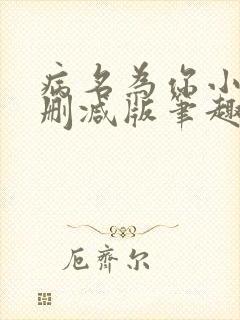 病名为你小
删减版笔趣
厄齐尔